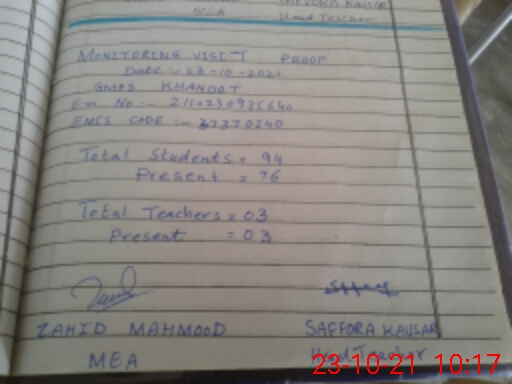 SAFFORA KAUSAR
MEA Head Teacher
MONITORING VISIT PROOF
Date :- 23-10-2021
GMPS KHANDOT
Em No :- 2110230935640
EMIS CODE :- 37370240
Total Students = 94
Present = 76
Total Teachers = 03
Present = 03
ZAHID MAHMOOD SAFFORA KAUSAR
MEA Head Teacher
23-10-21 10:17